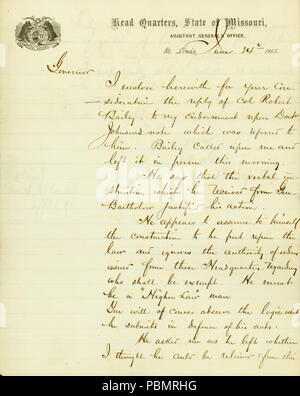 Head Quarters, State of Missouri,
ADJUTANT GENERAL'S OFFICE.
St. Louis, June 24th 1863
Governor
I enclose herewith for your Con
sideration the reply of Col Robert
Bailey, to my endorsement upon Doct
Johnson's note which was referred to
him. Bailey called upon me and
left it in person this morning.
He says that the verbal in
struction which he received from Gen
Bartholow justified his action.
He appears to assume to himself
the construction to be put upon the
law and ignores the authority of orders
issued from these Headquarters regarding
who shall be exempt. He must
be a "Higher Law" man
You will of course observe the logic which
he submits in defense of his acts.
He asked me as he left whether
I thought he could be relieved from this
alamy stock photo